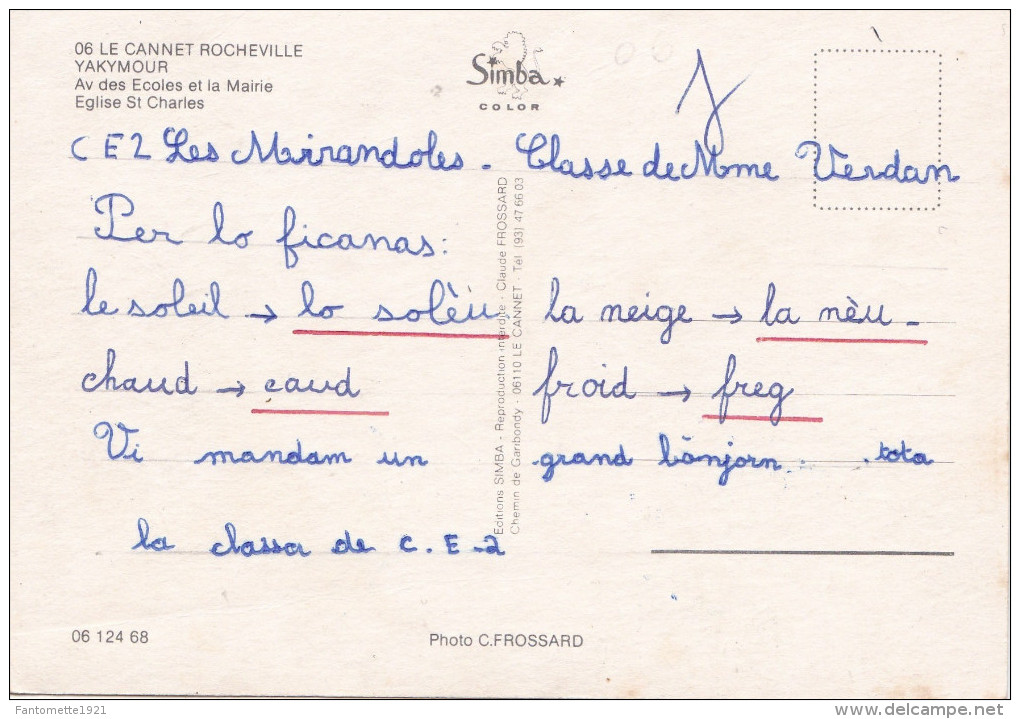 06 LE CANNET ROCHEVILLE
YAKYMOUR
Av des Ecoles et la Mairie
Eglise St Charles
Simba
COLOR
CE2 Les Mirandoles - Classe de Mme Verdan
Per lo ficanas:
le soleil → lo solèu la neige → la nèu -
chaud → caud froid → freg
Vi mandam un grand bònjorn . . tota
la classa de C.E-2
Editions SIMBA - Reproduction interdite - Claude FROSSARD
Chemin de Garibondy - 06110 LE CANNET - Tél (93) 47 66 03
06 124 68
Photo C.FROSSARD
Fantomette1921
delcampe.net